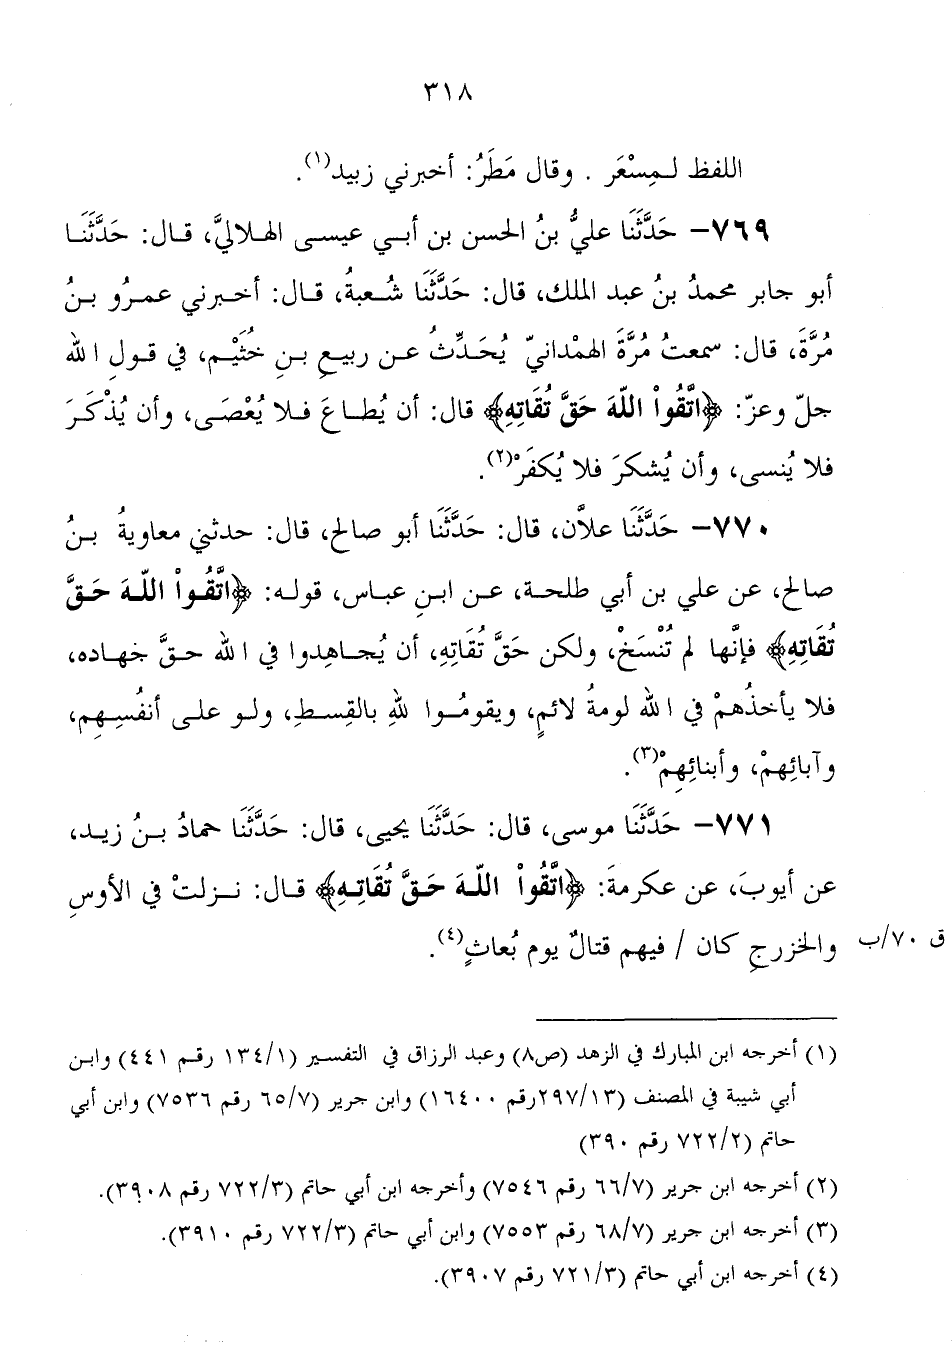 ٣١٨
اللفظ لـمِسْعَر . وقال مَطَرُ: أخبرني زبيد(١).
٧٦٩– حَدَّثَنَا عليُّ بنُ الحسن بن أبـي عيسـى الهـلاليَّ، قـال: حَدَّثَنَـا
أبو جابر محمدُ بنُ عبد الملك، قال: حَدَّثَنَا شُـعبةُ، قـال: أخـبرني عمـرُو بـنُ
مُرَّةَ، قال: سمعتُ مُرَّةَ الهمْدانيّ يُحَـدِّثُ عـن ربيـعِ بـنِ خثَيْـم، في قـولِ الله
جلّ وعزّ: ﴿اتَّقُواْ اللّهَ حَقَّ تُقَاتِهِ﴾ قال: أن يُطـاعَ فـلا يُعْصَـى، وأن يُذْكَـرَ
فلا يُنسى، وأن يُشكرَ فلا يُكفَرْ(٢).
٧٧٠– حَدَّثَنَا علاَّن، قال: حَدَّثَنَا أبو صالح، قال: حدثني معاويةُ بـنُ
صالح، عن علي بن أبي طلحـة، عـن ابنِ عباس، قولـه: ﴿اتَّقُـواْ اللّـهَ حَـقَّ
تُقَاتِهِ﴾ فإنَّها لم تُنْسَخْ، ولكن حَقَّ تُقَاتِهِ، أن يُجـاهِدوا في الله حـقَّ جهاده،
فلا يأخذُهمْ في الله لومةُ لائمٍ، ويقومُـوا للهِ بالقِسـطِ، ولـو علـى أنفُسِـهِم،
وآبائِهمْ، وأبنائِهِمْ(٣).
٧٧١– حَدَّثَنَا موسى، قال: حَدَّثَنَا يحيى، قال: حَدَّثَنَا حمادُ بـنُ زيـد،
عن أيوبَ، عن عكرمةَ: ﴿اتَّقُواْ اللّـهَ حَـقَّ تُقَاتِـهِ﴾ قـال: نـزلتْ في الأوسِ
والخزرجِ كان / فيهم قتالٌ يوم بُعاثٍ(٤).
ق ٧٠/ب
(١) أخرجه ابن المبارك في الزهد (ص٨) وعبد الرزاق في التفسير (١٣٤/١ رقـم ٤٤١) وابـن
أبي شيبة في المصنف (٢٩٧/١٣رقم ١٦٤٠٠) وابن جرير (٦٥/٧ رقم ٧٥٣٦) وابن أبي
حاتم (٧٢٢/٢ رقم ٣٩٠)
(٢) أخرجه ابن جرير (٦٦/٧ رقم ٧٥٤٦) وأخرجه ابن أبي حاتم (٧٢٢/٣ رقم ٣٩٠٨).
(٣) أخرجه ابن جرير (٦٨/٧ رقم ٧٥٥٣) وابن أبي حاتم (٧٢٢/٣ رقم ٣٩١٠).
(٤) أخرجه ابن أبي حاتم (٧٢١/٣ رقم ٣٩٠٧).